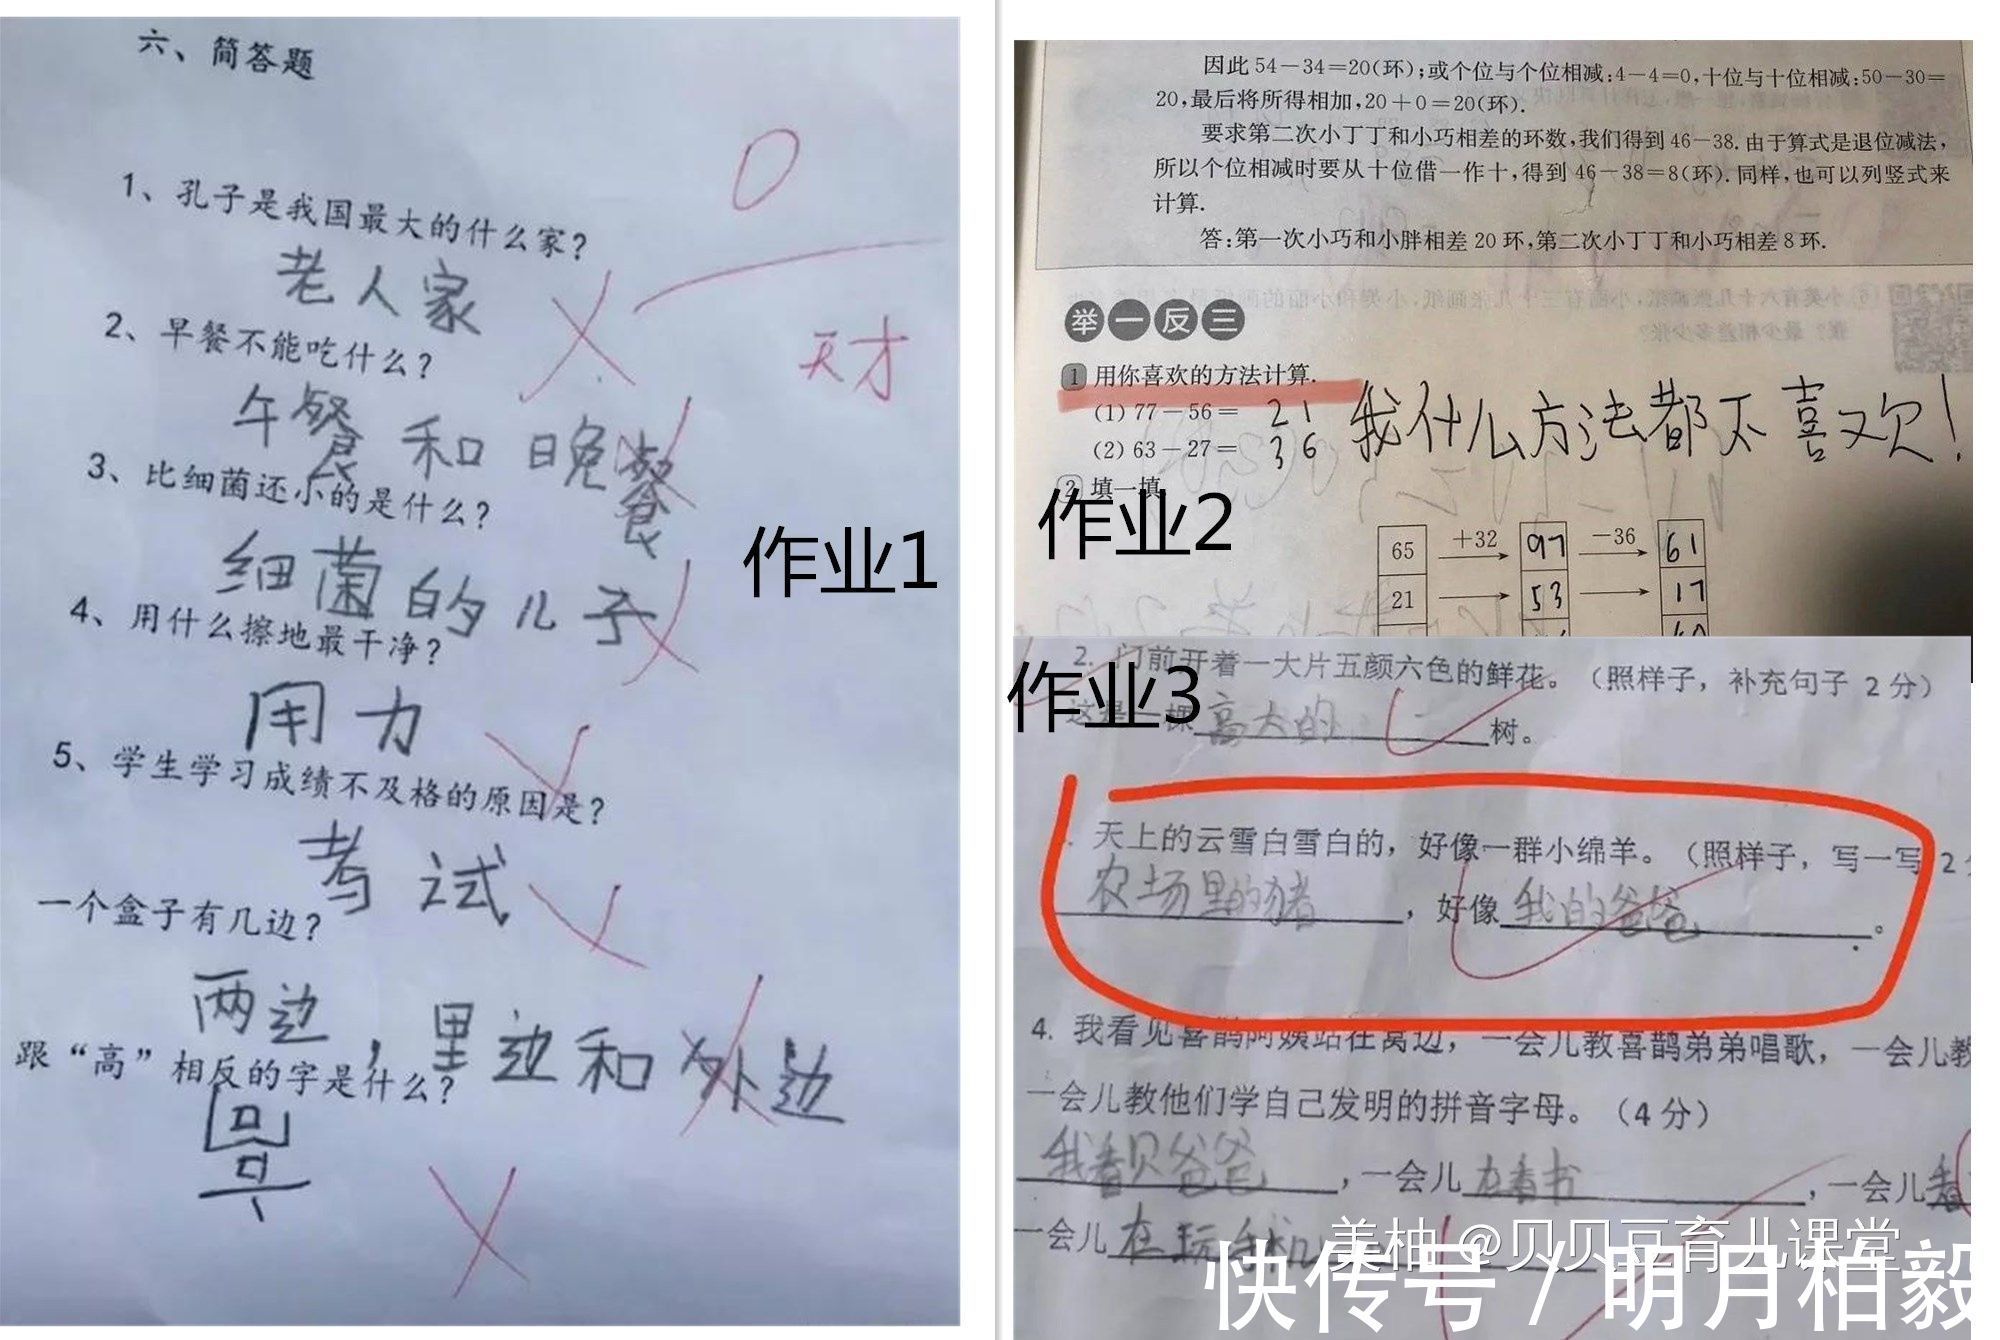 六、简答题
0
1、孔子是我国最大的什么家？
老人家
天才
2、早餐不能吃什么？
午餐和晚餐
3、比细菌还小的是什么？
细菌的儿子
作业1
4、用什么擦地最干净？
用力
5、学生学习成绩不及格的原因是？
考试
一个盒子有几边？
两边，里边和外边
跟“高”相反的字是什么？
因此54－34＝20(环)；或个位与个位相减：4－4＝0，十位与十位相减：50－30＝
20，最后将所得相加，20＋0＝20(环).
要求第二次小丁丁和小巧相差的环数，我们得到46－38.由于算式是退位减法，
所以个位相减时要从十位借一作十，得到46－38＝8(环).同样，也可以列竖式来
计算.
答：第一次小巧和小胖相差20环，第二次小丁丁和小巧相差8环.
举一反三
1 用你喜欢的方法计算.
(1) 77－56＝ 21
(2) 63－27＝ 36
我什么方法都不喜欢！
2 填一填
作业2
65 +32 97 －36 61
21 53 17
作业3
2. 门前开着一大片五颜六色的鲜花。（照样子，补充句子 2分）
这是一棵高大的树。
天上的云雪白雪白的，好像一群小绵羊。（照样子，写一写 2
农场里的猪，好像我的爸爸。
4. 我看见喜鹊阿姨站在窝边，一会儿教喜鹊弟弟唱歌，一会儿教
一会儿教他们学自己发明的拼音字母。（4分）
我看见爸爸，一会儿在看书，一会儿看
一会儿在玩手机
美柚 @贝贝豆育儿课堂
快传号 / 明月柏毅